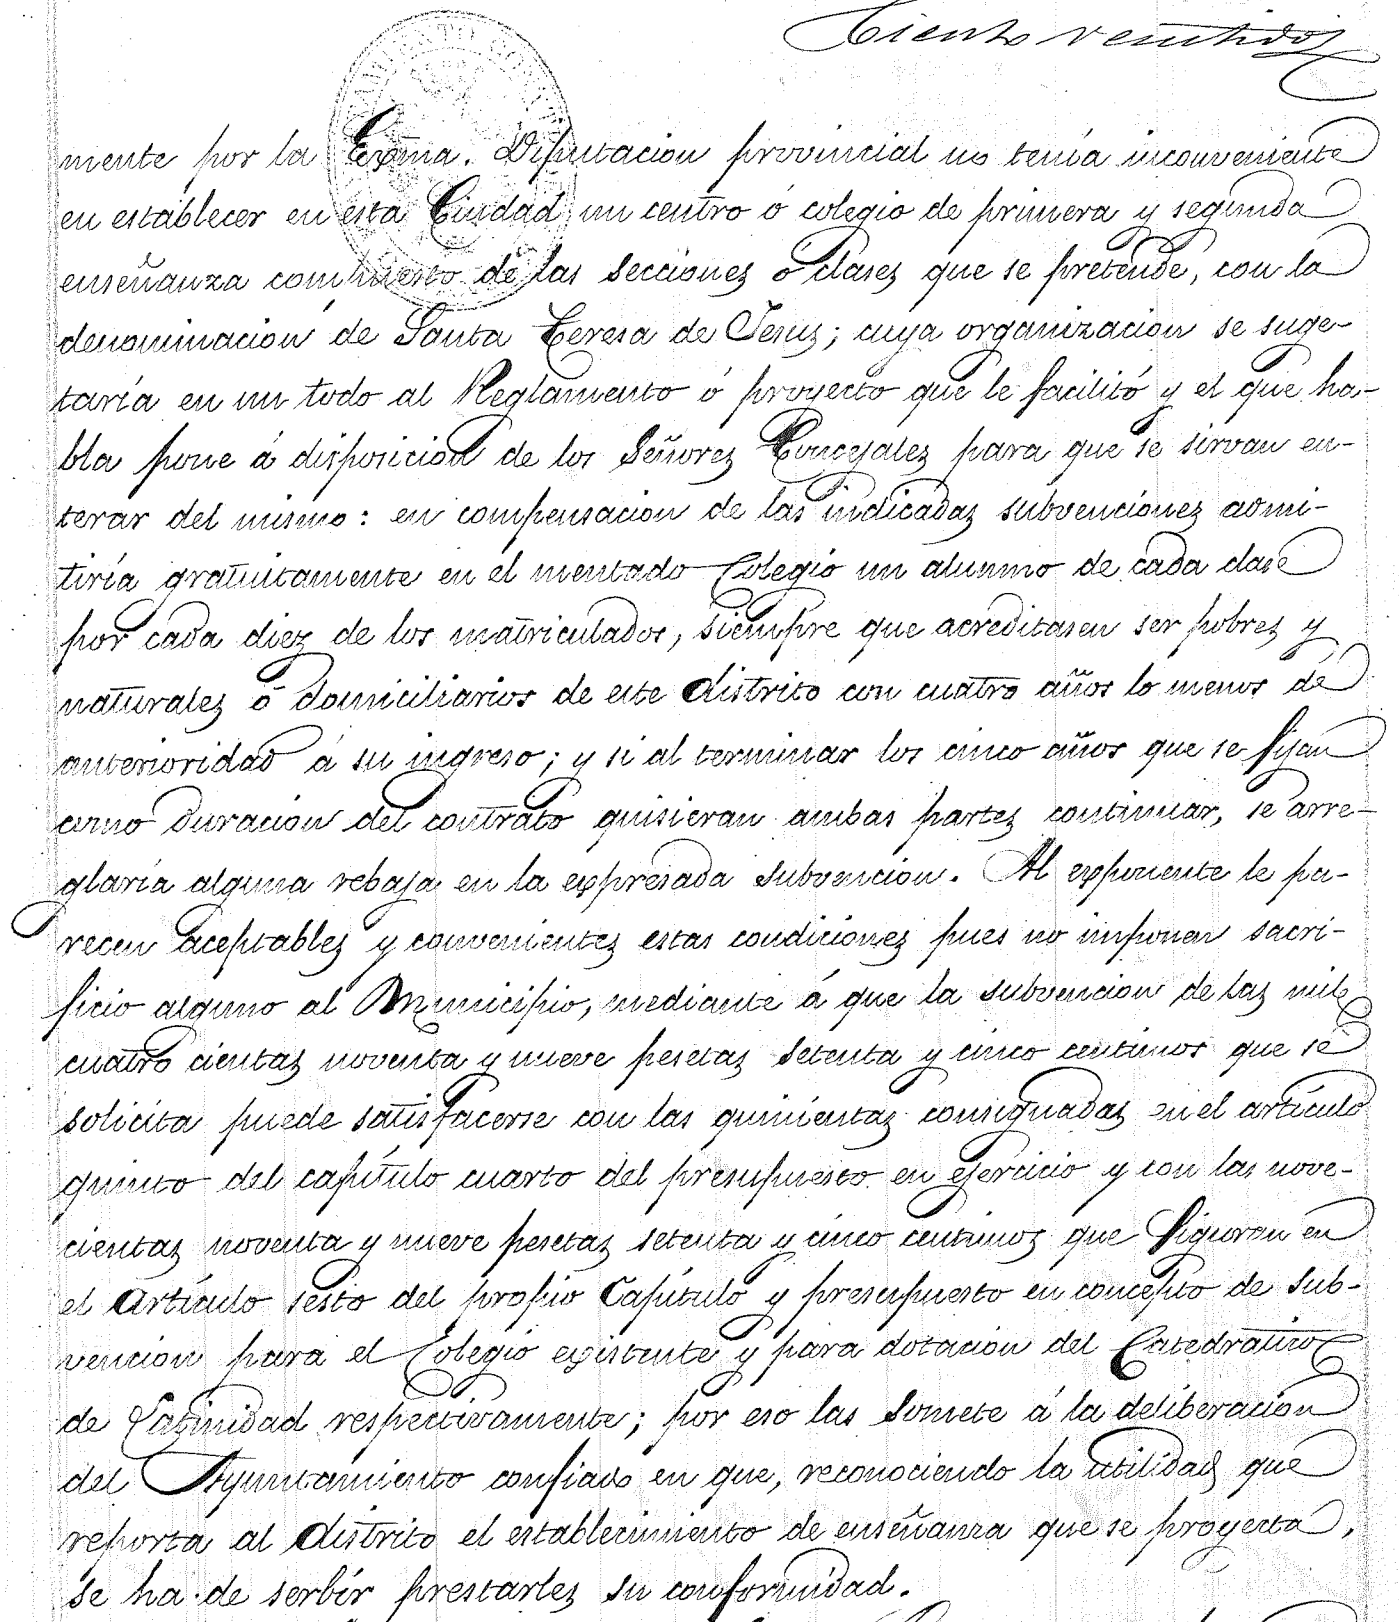 Ciento veintidos
mente por la Exma. Diputacion provincial no tenía inconveniente
en establecer en esta Ciudad un centro ó colegio de primera y segunda
enseñanza compuesto de las secciones ó clases que se pretende, con la
denominacion de Santa Teresa de Jesus; cuya organizacion se suge-
taría en un todo al Reglamento ó proyecto que le facilitó y el que ha-
bla pone á disposicion de los Señores Concejales para que se sirvan en-
terar del mismo: en compensacion de las indicadas subvenciones admi-
tiría gratuitamente en el mentado Colegio un alumno de cada clase
por cada diez de los matriculados, siempre que acreditasen ser pobres y
naturales ó domiciliarios de este distrito con cuatro años lo menos de
anterioridad á su ingreso; y si al terminar los cinco años que se fijan
como duracion del contrato quisieran ambas partes continuar, se arre-
glaría alguna rebaja en la expresada subvencion. Al exponente le pa-
recen aceptables y convenientes estas condiciones pues no imponen sacri-
ficio alguno al Municipio, mediante á que la subvencion de las mil
cuatro cientas noventa y nueve pesetas setenta y cinco centimos que se
solicita puede satisfacerse con las quinientas consignadas en el artículo
quinto del capítulo cuarto del presupuesto en ejercicio y con las nove-
cientas noventa y nueve pesetas setenta y cinco centimos que figuran en
el Artículo sesto del propio Capítulo y presupuesto en concepto de sub-
vencion para el Colegio existente y para dotacion del Catedratico
de Latinidad respectivamente; por eso las somete á la deliberacion
del Ayuntamiento confiado en que, reconociendo la utilidad que
reporta al distrito el establecimiento de enseñanza que se proyecta,
se ha de serbir prestarles su conformidad.